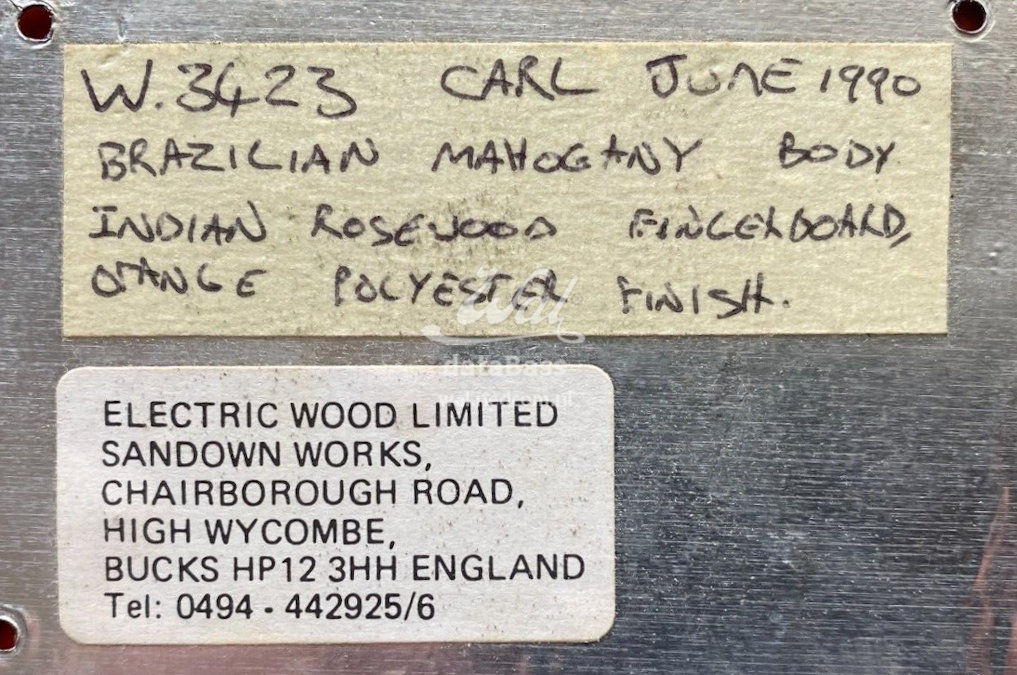 W.3423 CARL JUNE 1990
BRAZILIAN MAHOGANY BODY
INDIAN ROSEWOOD FINGERBOARD,
ORANGE POLYESTER FINISH.
Wal®
dataBass
ELECTRIC WOOD LIMITED
SANDOWN WORKS,
CHAIRBOROUGH ROAD,
HIGH WYCOMBE,
BUCKS HP12 3HH ENGLAND
Tel: 0494 - 442925/6